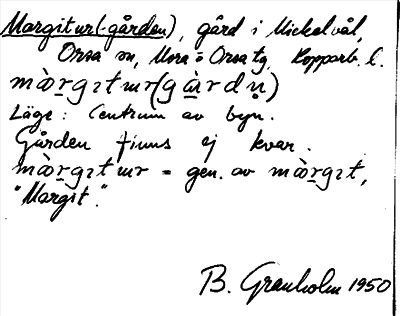 Margitur(-gården), gård i Mickelvål,
Orsa sn, Mora o Orsa tg, Kopparb. l.
màrgɪtɯr(gɯ̀rdṇ)
Läge: Centrum av byn.
Gården finns ej kvar.
màrgɪtɯr = gen. av màrgɪt,
"Margit".
B. Granholm 1950